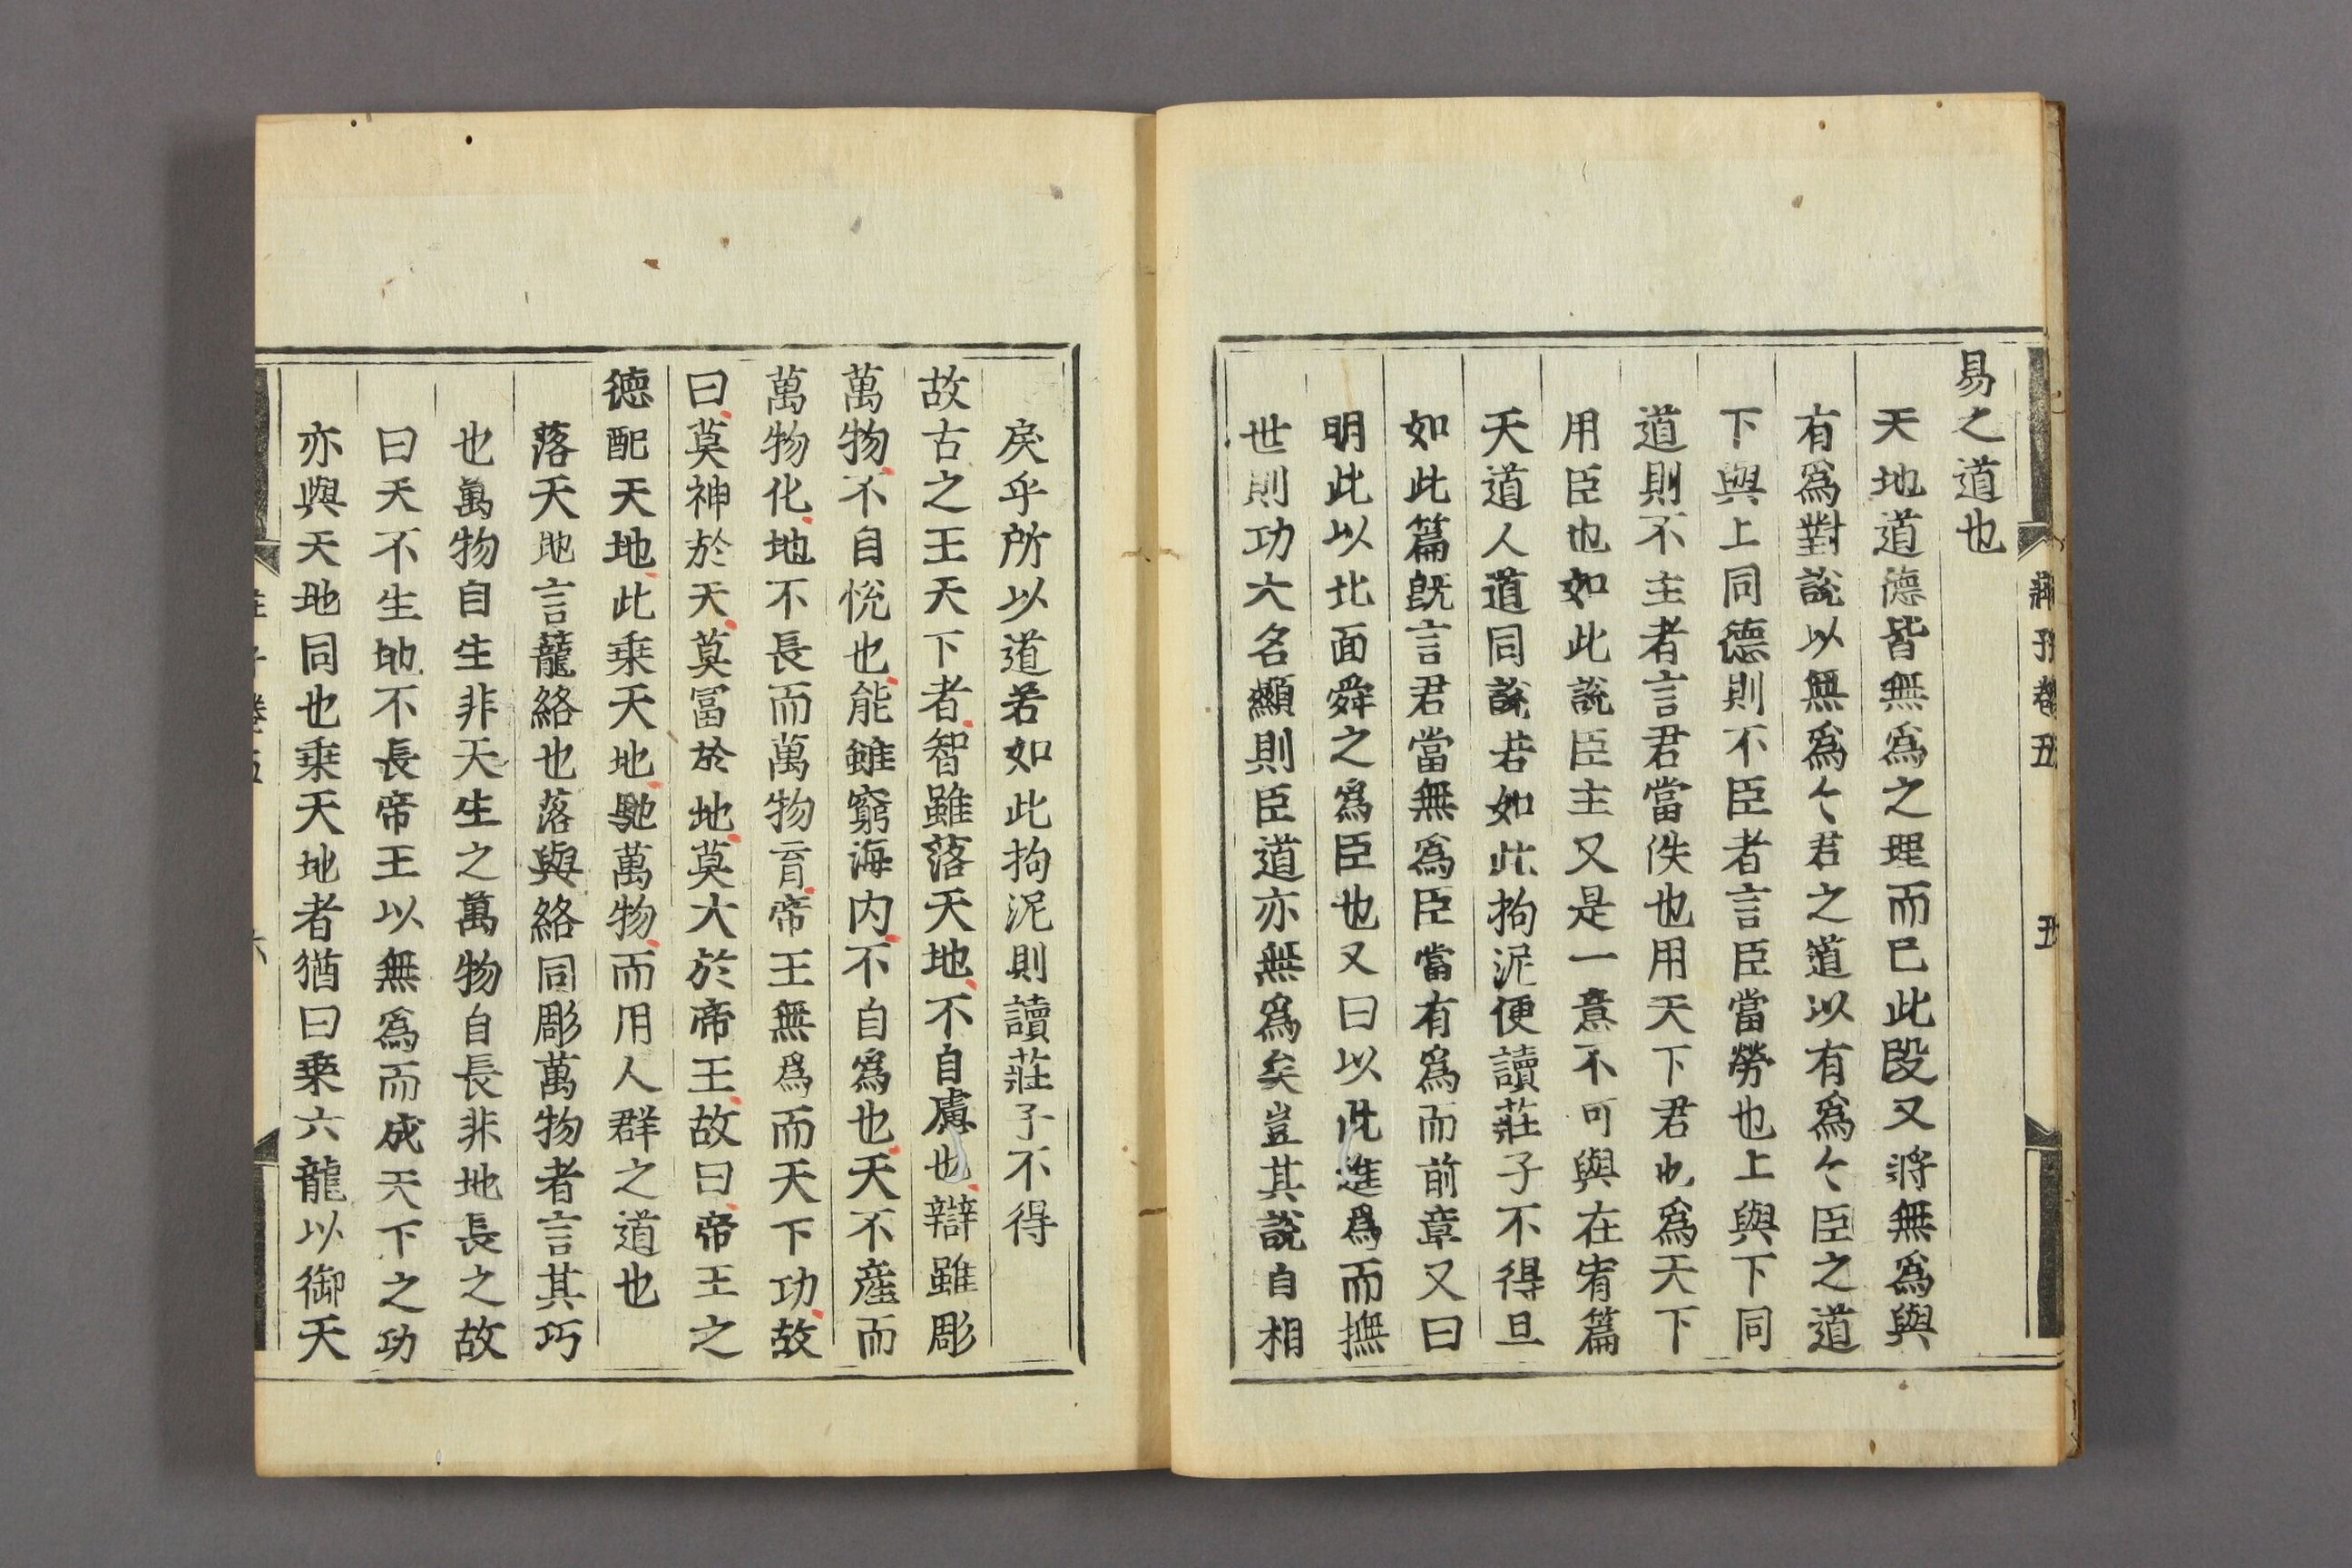 易之道也
天地道德皆無爲之理而已此段又將無爲與
有爲對說以無爲〻君之道以有爲〻臣之道
下與上同德則不臣者言臣當勞也上與下同
道則不主者言君當佚也用天下君也爲天下
用臣也如此說臣主又是一意不可與在宥篇
天道人道同說若如此拘泥便讀莊子不得且
如此篇既言君當無爲臣當有爲而前章又曰
明此以北面舜之爲臣也又曰以此進爲而撫
世則功大名顯則臣道亦無爲矣豈其說自相
戾乎所以道若如此拘泥則讀莊子不得
故古之王天下者智雖落天地不自慮也辯雖彫
萬物不自悅也能雖窮海内不自爲也天不產而
萬物化地不長而萬物育帝王無爲而天下功故
曰莫神於天莫富於地莫大於帝王故曰帝王之
德配天地此乘天地馳萬物而用人群之道也
落天地言籠絡也落與絡同彫萬物者言其巧
也萬物自生非天生之萬物自長非地長之故
曰天不生地不長帝王以無爲而成天下之功
亦與天地同也乘天地者猶曰乗六龍以御天